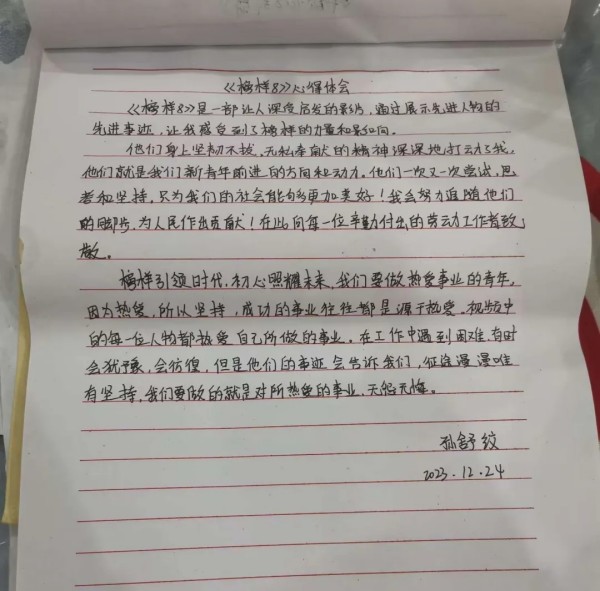 《榜样8》心得体会
《榜样8》是一部让人深受启发的影片，通过展示先进人物的
先进事迹，让我感受到了榜样的力量和影响。
他们身上坚韧不拔、无私奉献的精神深深地打动了我，
他们就是我们新青年前进的方向和动力。他们一次又一次尝试，思
考和坚持，只为我们的社会能够更加美好！我会努力追随他们
的脚步，为人民作出贡献！在此向每一位辛勤付出的劳动工作者致
敬。
榜样引领时代，初心照耀未来，我们要做热爱事业的青年。
因为热爱，所以坚持，成功的事业往往都是源于热爱。视频中
的每一位人物都热爱自己所做的事业。在工作中遇到困难，有时
会犹豫，会彷徨，但是他们的事迹会告诉我们，征途漫漫唯
有坚持，我们要做的就是对所热爱的事业，无怨无悔。
孙舒纹
2023.12.24